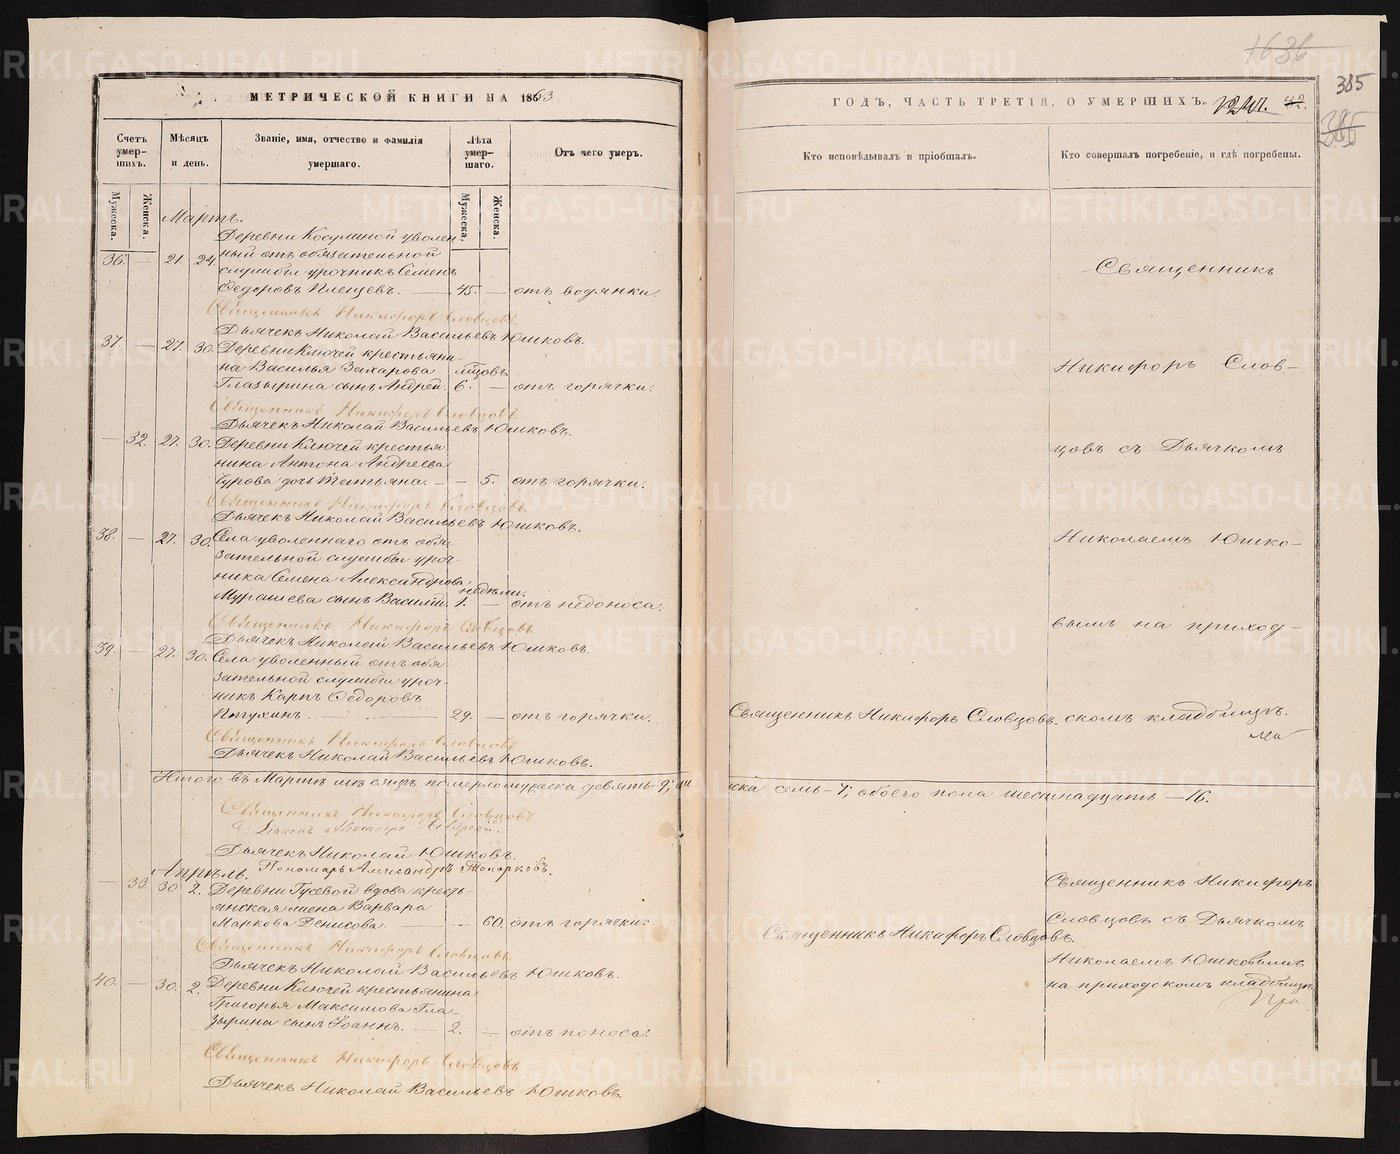 МЕТРИЧЕСКОЙ КНИГИ НА 1863
ГОДЪ, ЧАСТЬ ТРЕТІЯ, О УМЕРШИХЪ.
42.
1636
385
385
Счетъ умер-шихъ.
Мѣсяцъ и день.
Званіе, имя, отчество и фамилія умершаго.
Лѣта умер-шаго.
Отъ чего умеръ.
Кто исповѣдывалъ и пріобщалъ.
Кто совершалъ погребеніе, и гдѣ погребены.
Мужеска.
Женска.
Мужеска.
Женска.
Мартъ.
Деревни Косулиной уволен-
ный отъ обязательной
36. — 21. 24. службы урочникъ Семенъ
Федоровъ Плещевъ. — 45. — отъ водянки.
Священникъ Никифоръ Словцовъ
Дьячекъ Николай Васильевъ Юшковъ.
37. — 27. 30. Деревни Ключей крестьяни-
на Василья Захарова мѣсцовъ
Глазырина сынъ Андрей. 6. — отъ горячки.
Священникъ Никифоръ Словцовъ
Дьячекъ Николай Васильевъ Юшковъ.
— 32. 27. 30. Деревни Ключей крестья-
нина Антона Андреева
Чурова дочь Татьяна. — — 5. отъ горячки.
Священникъ Никифоръ Словцовъ
Дьячекъ Николай Васильевъ Юшковъ.
38. — 27. 30. Села уволеннаго отъ обя-
зательной службы уроч-
ника Семена Александрова недѣли.
Мурашева сынъ Василій. 1. — отъ недоноса.
Священникъ Никифоръ Словцовъ
Дьячекъ Николай Васильевъ Юшковъ.
39. — 27. 30. Села уволенный отъ обя-
зательной службы уроч-
никъ Карпъ Федоровъ
Пѣтухинъ. — 29. — отъ горячки.
Священникъ Никифоръ Словцовъ
Дьячекъ Николай Васильевъ Юшковъ.
Священникъ
Никифоръ Слов-
цовъ съ Дьячкомъ
Николаемъ Юшко-
вымъ на приход-
Священникъ Никифоръ Словцовъ. скомъ кладбищѣ.
Итого въ Мартѣ мѣсяцѣ померло мужеска девять—9, женска семь—7, обоего пола шестнадцать—16.
Священникъ Никифоръ Словцовъ
Дьячекъ Николай Юшковъ.
Пономарь Александръ Топорковъ.
Апрѣль.
— 33. 30. 2. Деревни Гусевой вдова кресть-
янская жена Варвара
Маркова Денисова. — — 60. отъ горячки.
Священникъ Никифоръ Словцовъ
Дьячекъ Николай Васильевъ Юшковъ.
40. — 30. 2. Деревни Ключей крестьянина
Григорья Максимова Гла-
зырина сынъ Іоаннъ. — 2. — отъ поноса.
Священникъ Никифоръ Словцовъ
Дьячекъ Николай Васильевъ Юшковъ.
Священникъ Никифоръ Словцовъ.
Священникъ Никифоръ
Словцовъ съ Дьячкомъ
Николаемъ Юшковымъ
на приходскомъ кладбищѣ
METRIKI.GASO-URAL.RU